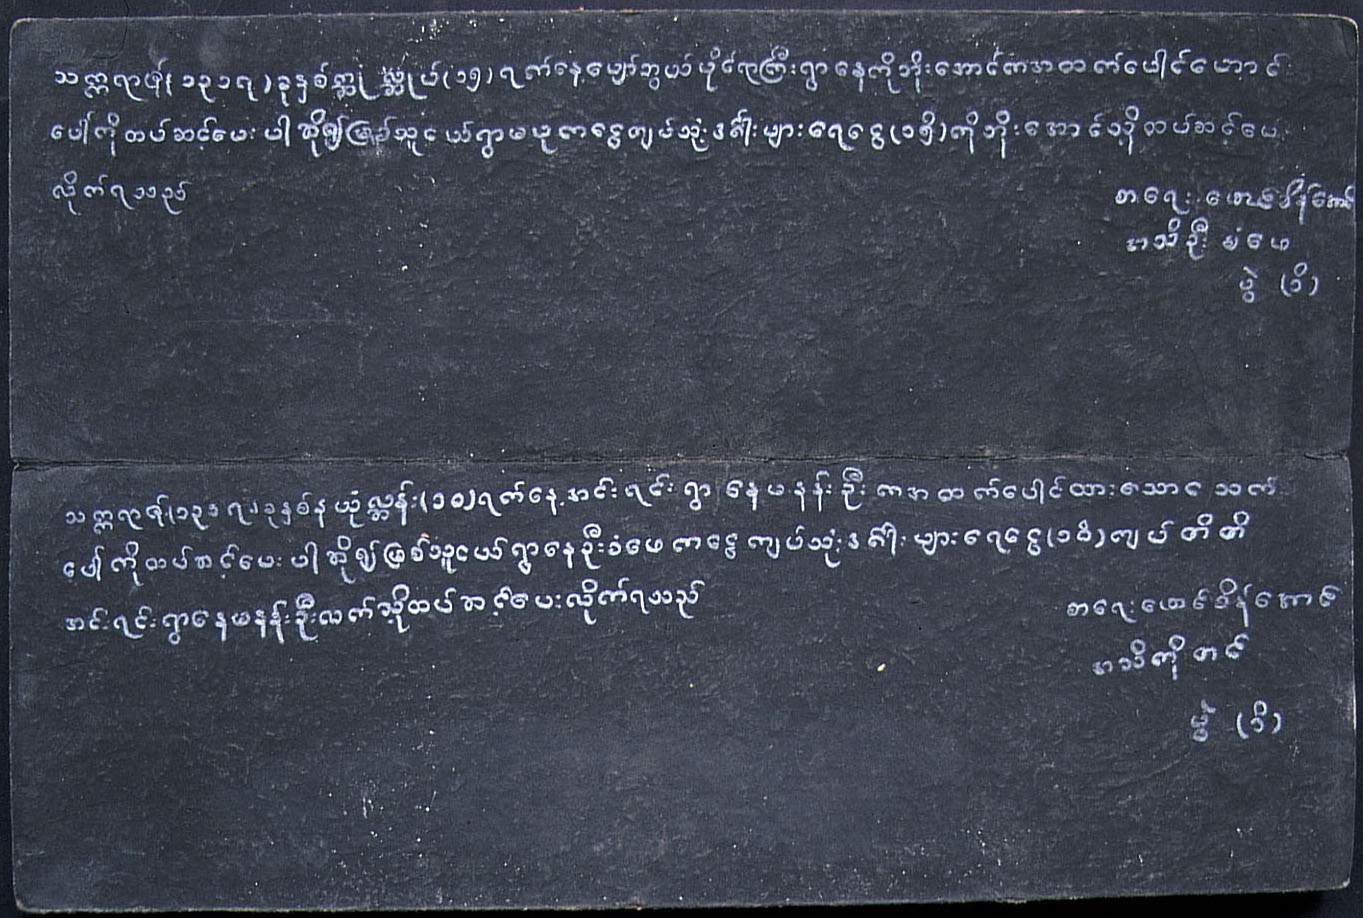 သက္ကရာဇ်(၁၃၁၇)ခုနှစ်ဣဣလ္လုပ်(၁၅)ရက်နေ့ပျော်ဘွယ်ပိုင်ရာကြီးရွာနေကိုဘိုးအောင်ကအထက်ပေါင်ဟောင်း
ပေါ်ကိုထပ်ဆင့်ပေးပါဆို၍မြစ်သူငယ်ရွာမယုကငွေကျပ်သုံးဒင်္ဂါးများရေငွေ(၁၅ိ)ကိုဘိုးအောင်သို့ထပ်ဆင့်ပေး
လိုက်ရသည်
စာရေး ဖောင်စိန်အောင်
အသိဦးခံဖေ
မွဲ (၁ိ)
သက္ကရာဇ်(၁၃၁၇)ခုနှစ်နယုံလ္ဆန်း(၁၀)ရက်နေ့အင်းရင်းရွာနေမနန်းဦးကအထက်ပေါင်ထားသောငသက်
ပေါ်ကိုထပ်ဆင့်ပေးပါဆို၍မြစ်သူငယ်ရွာနေဦးခံဖေကငွေကျပ်သုံးဒင်္ဂါးများရေငွေ(၁၀ိ)ကျပ်တိတိ
အင်းရင်းရွာနေမနန်းဦးလက်သို့ထပ်ဆင့်ပေးလိုက်ရသည်
စာရေးဖောင်စိန်အောင်
အသိကိုတင်
မွဲ (၁ိ)